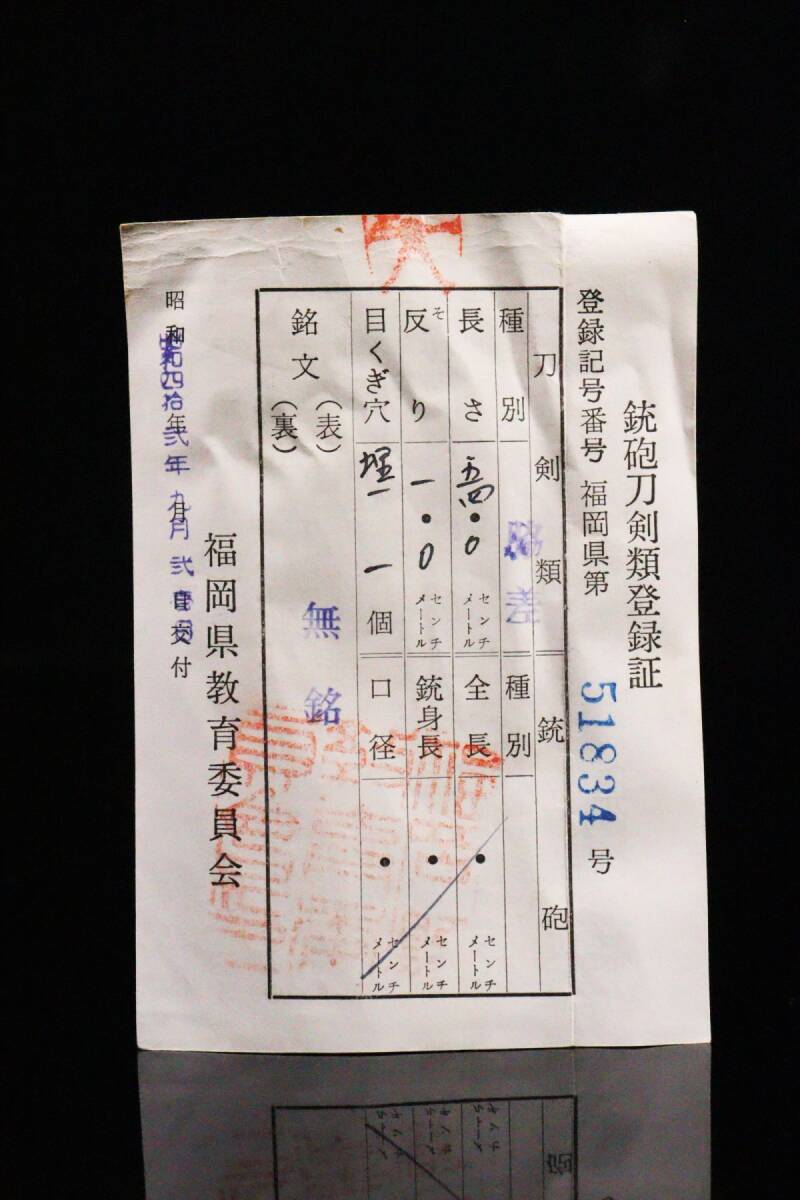 銃砲刀剣類登録証
登録記号番号 福岡県第 51834 号
刀剣類
銃砲
種別 脇差
種別
長さ 五四・0 センチメートル
全長 ・ センチメートル
反り そ 一・0 センチメートル
銃身長 ・ センチメートル
目くぎ穴 埋一 一 個
口径 ・ センチメートル
銘文 (表) 無銘
(裏)
昭和 年 月 日交付
昭和四拾弐年九月弐
福岡県教育委員会